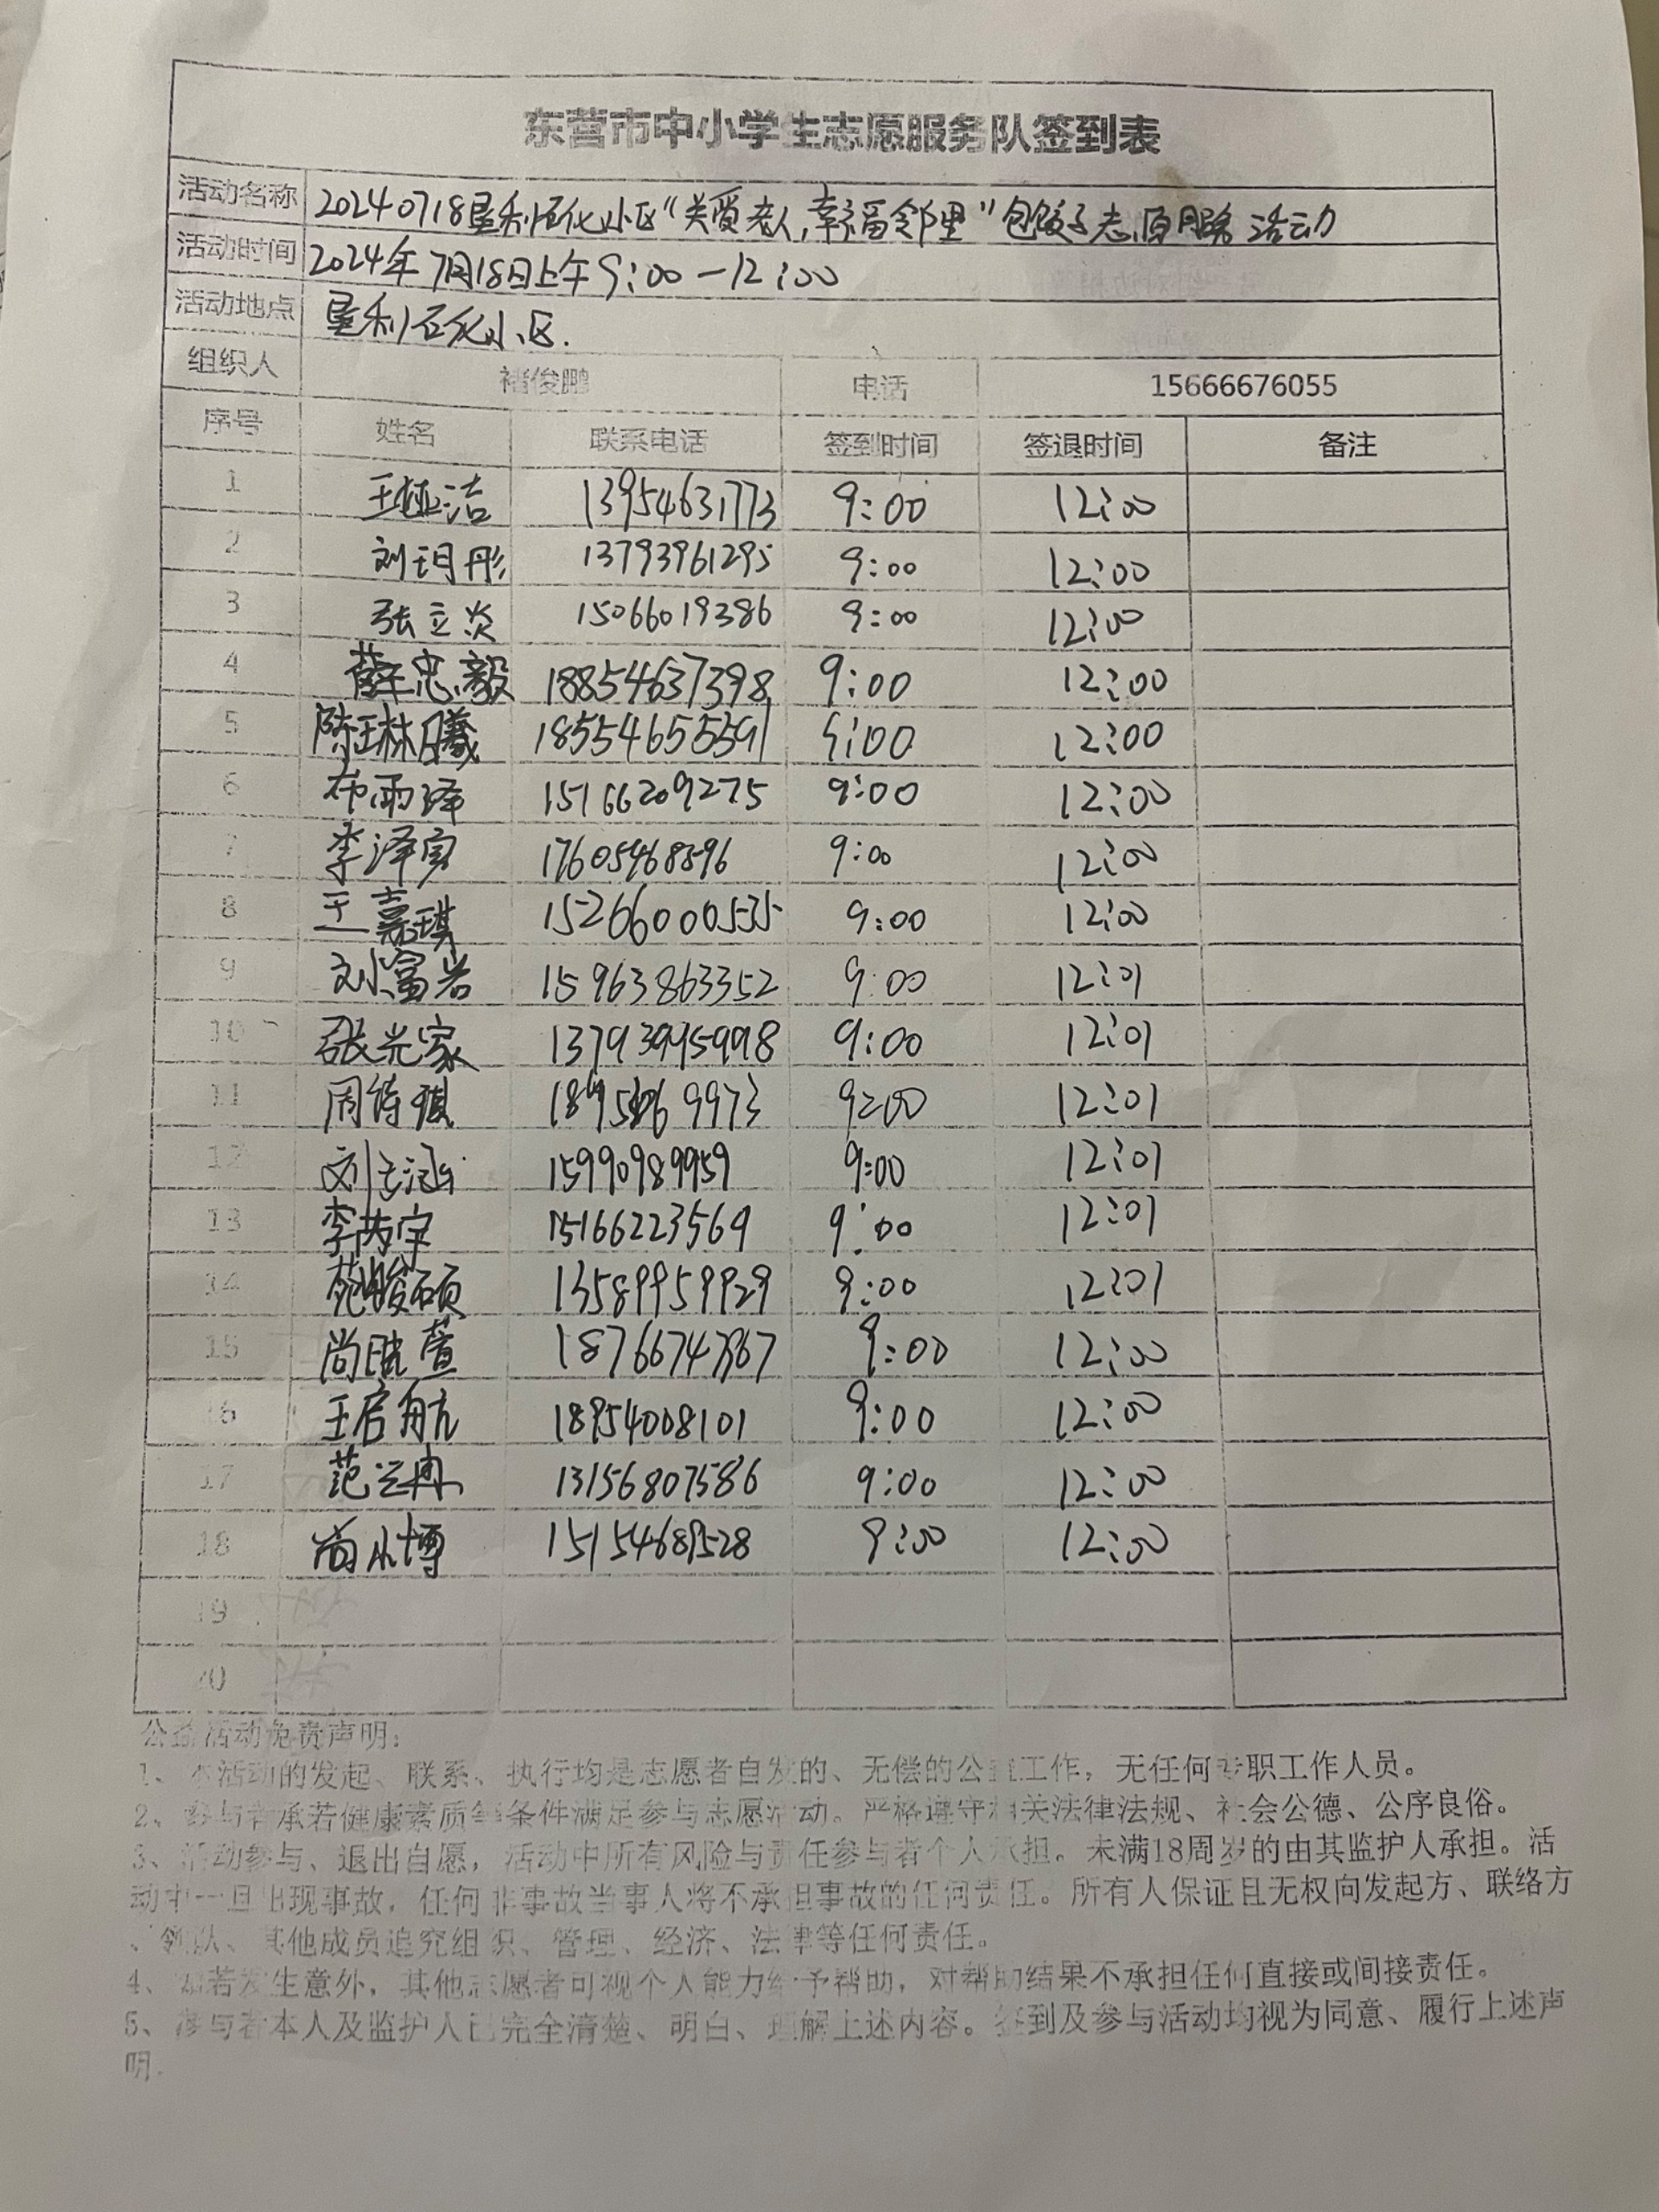 东营市中小学生志愿服务队签到表
活动名称 20240718垦利石化小区“关爱老人,幸福邻里”包饺子志愿服务活动
活动时间 2024年7月18日上午9:00-12:00
活动地点 垦利石化小区.
组织人 褚俊鹏 电话 15666676055
序号 姓名 联系电话 签到时间 签退时间 备注
1 王桠洁 13954631773 9:00 12:00
2 刘玥彤 13793961295 9:00 12:00
3 张立炎 15066019386 9:00 12:00
4 薛忠毅 18854637398 9:00 12:00
5 陈琳曦 18554655591 9:00 12:00
6 布雨泽 15166209275 9:00 12:00
7 李泽寅 17605468596 9:00 12:00
8 王嘉琪 15266000535 9:00 12:00
9 刘富岩 15963863352 9:00 12:01
10 张光家 13793995998 9:00 12:01
11 周诗琪 9:00 12:01
12 刘 15990989959 9:00 12:01
13 李芮宇 15166223569 9:00 12:01
14 苑骏硕 13589959929 9:00 12:01
15 尚 萱 9:00 12:00
16 王启航 18954008101 9:00 12:00
17 范 冉 13156807586 9:00 12:00
18 尚 博 15154689528 9:00 12:00
19
20
公益活动免责声明:
1、本活动的发起、联系、执行均是志愿者自发的、无偿的公益工作,无任何专职工作人员。
2、参与者承若健康素质等条件满足参与志愿活动。严格遵守相关法律法规、社会公德、公序良俗。
3、活动参与、退出自愿,活动中所有风险与责任参与者个人承担。未满18周岁的由其监护人承担。活
动中一旦出现事故,任何非事故当事人将不承担事故的任何责任。所有人保证且无权向发起方、联络方
、领队、其他成员追究组织、管理、经济、法律等任何责任。
4、如若发生意外,其他志愿者可视个人能力给予帮助,对帮助结果不承担任何直接或间接责任。
5、参与者本人及监护人已完全清楚、明白、理解上述内容。签到及参与活动均视为同意、履行上述声
明.